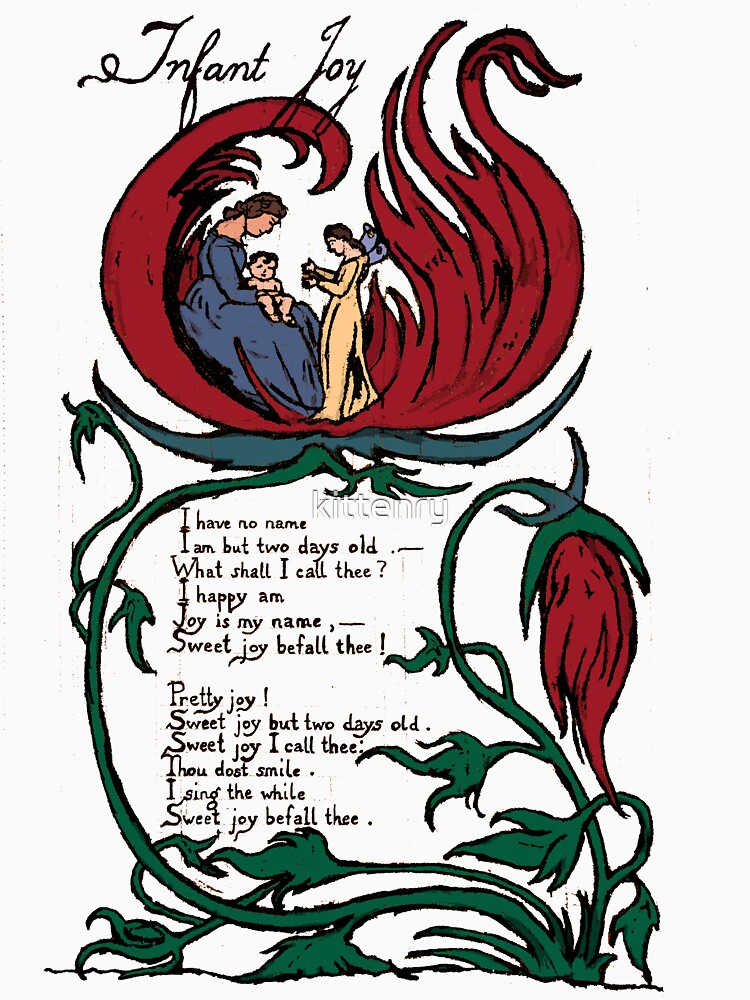 Infant Joy
kittenry
I have no name
I am but two days old .—
What shall I call thee?
I happy am
Joy is my name,—
Sweet joy befall thee!
Pretty joy!
Sweet joy but two days old.
Sweet joy I call thee:
Thou dost smile.
I sing the while
Sweet joy befall thee.